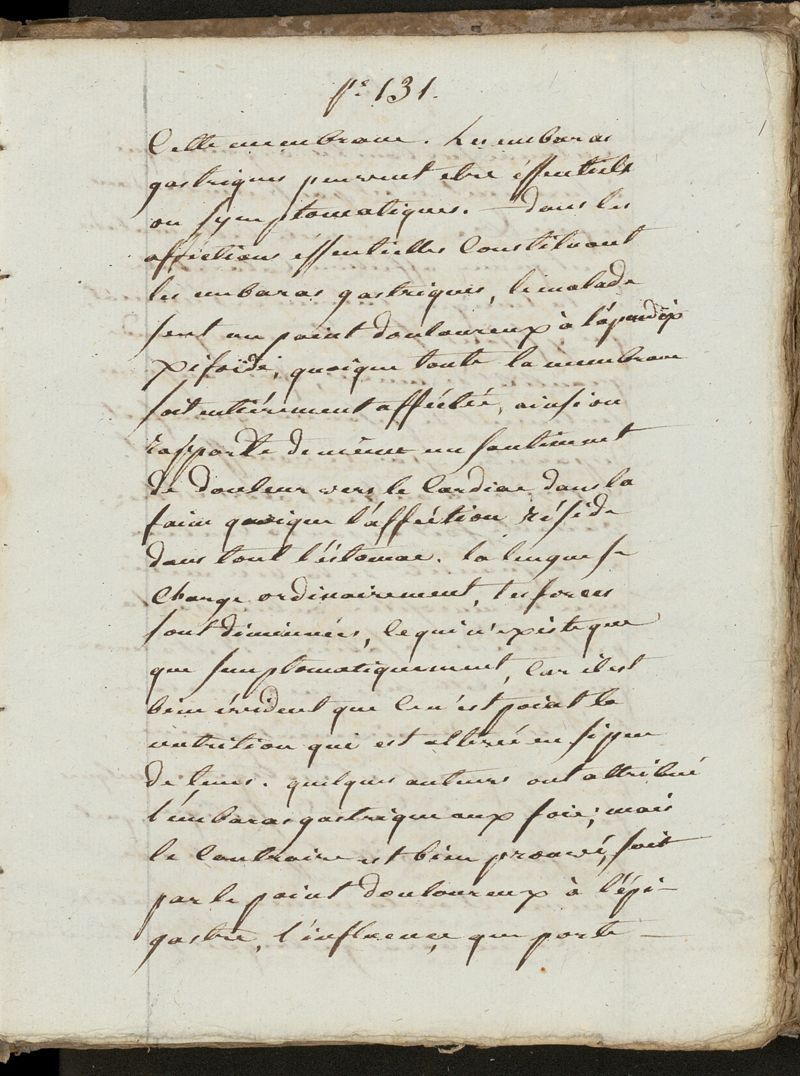 p.e 131.
Cette membrane. Les embaras
gastriques peuvent etre éssentiels
ou symptomatiques. — dans les
affections éssentielles Constituant
les embaras gastriques, le malade
sent un point douloureux à l'apendix
xifoïde, quoique toute la membrane
soit entiérement afféctée, ainsi on
rapporte de même un sentiment
de douleur vers le Cardiac dans la
faim quoique l'afféction réside
dans tout l'éstomac. la langue se
Charge ordinairement, les forces
sont diminuées, ce qui n'existe que
que symptomatiquement, Car il est
bien évident que Ce n'est point la
nutrition qui est altérée en si peu
de tems. quelques auteurs ont attribué
l'embaras gastrique aux foie; mais
le Contraire est bien prouvé, soit
par le point douloureux à l'épi-
gastre, l'influence, que porte —